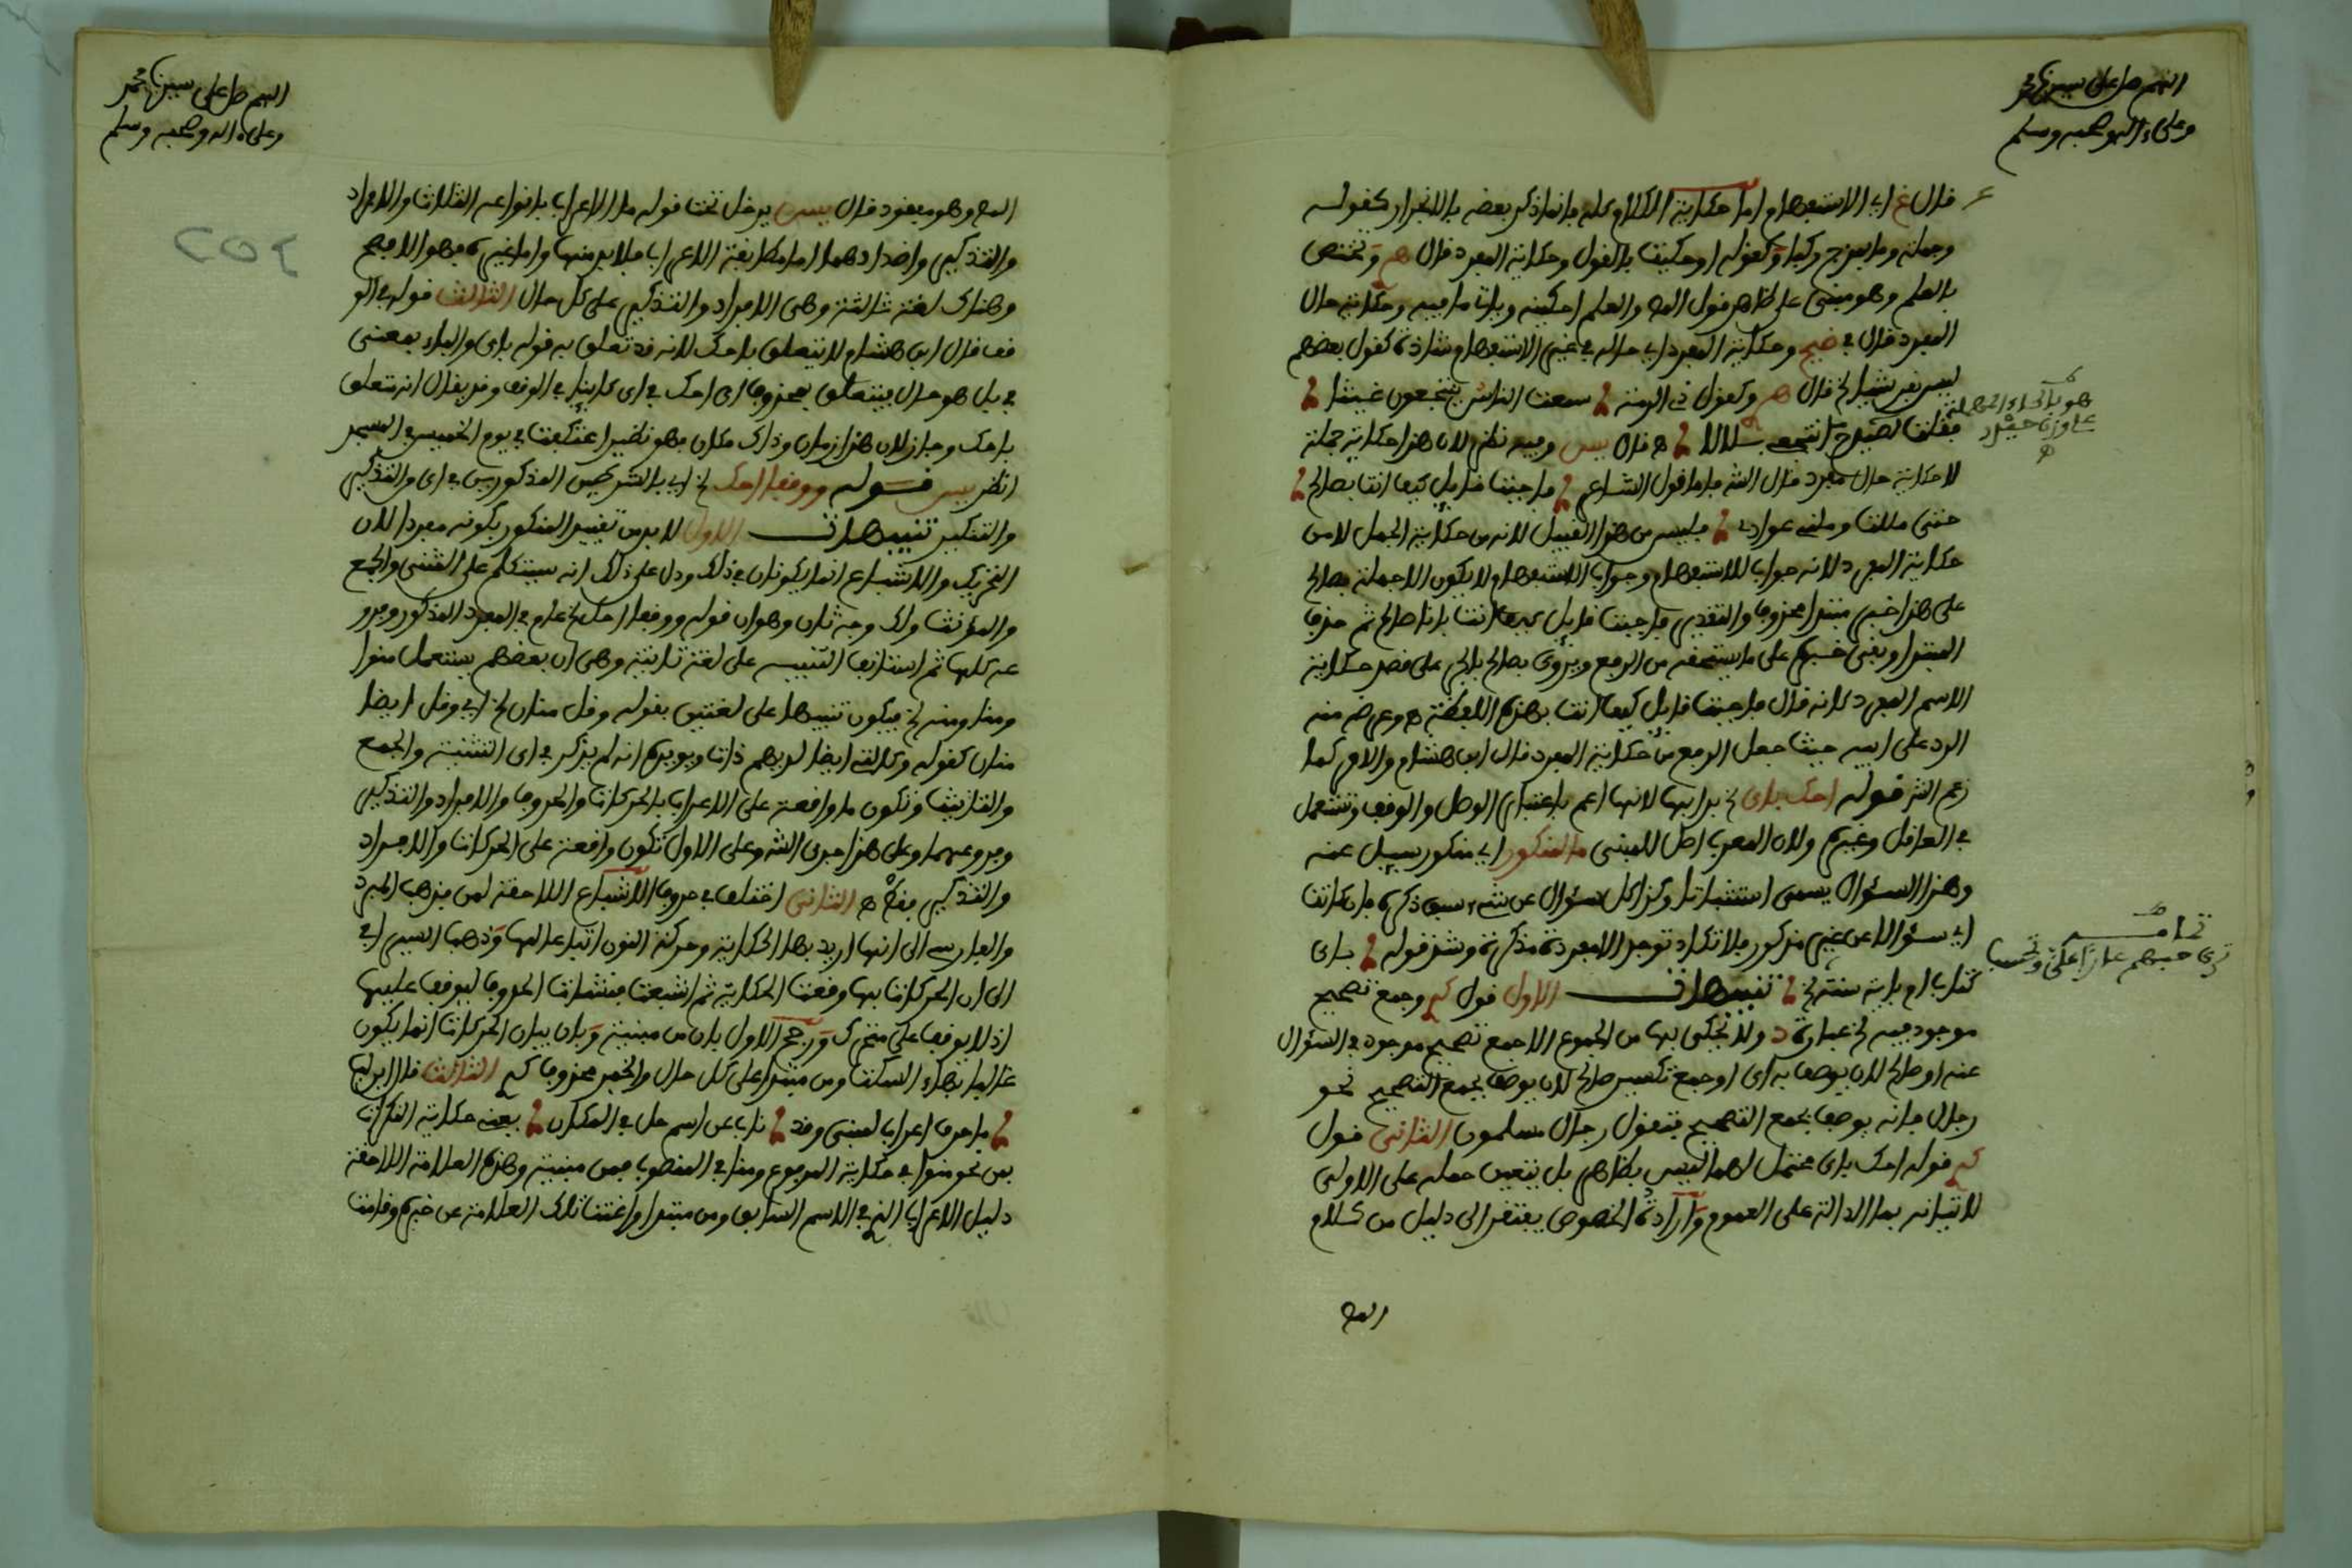 اللهم صل على سيدنا محمد
وعلى ءاله وصحبه وسلم
قال غ اي الاستفهام اما حكاية الكلام كله فانما ذكر بعضه بالانجرار كقوله
وجملة وما بمزج ركبا وكقوله او حكيت بالقول وحكاية المفرد قال هم وتختص
بالعلم وهو مبني على ظاهر قول المص والعلم احكينه وياتي ما فيه وحكاية حال
المفرد قال في ضيح وحكاية المفرد اي حاله في غير الاستفهام شاذة كقول بعضهم
ليس بقرشيا الخ قال هم وكقول ذي الرمة سمعت الناس ينتجعون غيثا
فقلت لصيدح انتجعي بلالا ه قال يس وفيه نظر لان هذا حكاية جملة
هو بالحاء المهملة
على وزن حيدر
لا حكاية حال مفرد قال الش فاما قول الشاعر فاجبت قايل كيف انت بصالح
حتى مللت وملني عوادي فليس من هذا القبيل لانه من حكاية الجمل لا من
حكاية المفرد لانه جواب للاستفهام وجواب الاستفهام لا يكون الا جملة بصالح
على هذا خبر مبتدا محذوف والتقدير فاجبت قايل كيف انت بانا صالح ثم حذف
المبتدا وبقي خبره على ما يستحقه من الرفع ويروى بصالح بالجر على قصد حكاية
الاسم المفرد كانه قال فاجبت قايل كيف انت بهذه اللفظة ه وغرضه منه
الرد على ابيه حيث جعل الرفع من حكاية المفرد قال ابن هشام والامر كما
زعم الش قوله احك باي الخ بدا بها لانها اعم باعتبار الوصل والوقف وتستعمل
في العاقل وغيره ولان المعرب اصل للمبني ما لمنكور اي منكور سيل عنه
وهذا السؤال يسمى استثباتا وكذا كل سؤال عن شيء سبق ذكره فان كانت
اي سؤالا عن غير مذكور فلا تكاد توجد الا مفردة مذكرة وشذ قوله باي
كتاب ام باية سنة الخ تنبيهات الاول قول كم وجمع تصحيح
تمامه
ترى حبهم عارا علي وتحسب
موجود فيه الخ عبارة د ولا يحكى بها من الجموع الا جمع تصحيح موجود في السؤال
عنه او صالح لان يوصف به اي او جمع تكسير صالح لان يوصف بجمع التصحيح نحو
رجال فانه يوصف بجمع التصحيح فتقول رجال مسلمون الثاني قول
كم قوله احك باي محتمل لهما ليس بظاهر بل يتعين حمله على الاولى
لاتيانه بما الدالة على العموم وارادة الخصوص يفتقر الى دليل من كلام
المص
اللهم صل على سيدنا محمد
وعلى ءاله وصحبه وسلم
٢٥٤
المص وهو مفقود قال يس يدخل تحت قوله ما الاعراب بانواعه الثلاث والافراد
والتذكير واضدادهما اما مطابقة الاعراب فلا بد منها واما غيره فهو الافصح
وهناك لغة ثالثة وهي الافراد والتذكير على كل حال الثالث قوله في الو
قف قال ابن هشام لا يتعلق باحك لانه قد تعلق به قوله باي والباء بمعنى
في بل هو حال يتعلق بمحذوف اي احك في اي كاينا في الوقف وقد يقال انه متعلق
باحك وجاز لان هذا زمان وذاك مكان فهو نظير اعتكفت في يوم الخميس في المسجد
انظر يس قوله ووقفا احك الخ اي بالشرطين المذكورين في اي والتذكير
والتنكير تنبيهات الاول لا بد من تقييد المنكور بكونه مفردا لان
التحريك والاشباع انما يكونان في ذلك ودل على ذلك انه سيتكلم على المثنى والجمع
والمؤنث ولك وجه ثان وهو ان قوله ووقفا احك الخ عام في المفرد المذكور وفرو
عه كلها ثم استانف التنبيه على لغة ثانية وهي ان بعضهم يستعمل منوا
ومنا ومني الخ فيكون تنبيها على لغتين بقوله وقل منان الخ اي وقل ايضا
منان كقوله وكالتي ايضا لديهم ذات ويويده انه لم يذكر في اي التثنية والجمع
والتانيث وتكون ما واقعة على الاعراب بالحركات والحروف والافراد والتذكير
وفروعهما وعلى هذا جرى الش وعلى الاول تكون واقعة على الحركات والافراد
والتذكير فقط ه الثاني اختلف في حروف الاشباع اللاحقة لمن فذهب المبرد
والفارسي الى انها اريد بها الحكاية وحركة النون اتباعا لها وذهب السيرافي
الى ان الحركات بها وقعت الحكاية ثم اشبعت فنشات الحروف ليوقف عليها
اذ لا يوقف على متحرك ورجح الاول بان من مبنية وبان بيان الحركات انما يكون
غالبا بهاء السكت ومن مبتدا على كل حال والخبر محذوف كم الثالث قال ابن لب
ما حرف اعراب لمبني وقد ناب عن اسم حل في المكان يعني حكاية النكرات
بمن نحو منوا في حكاية المرفوع ومنا في المنصوب فمن مبنية وهذه العلامة اللاحقة
دليل الاعراب الذي في الاسم السابق ومن مبتدا واغنت تلك العلامة عن خبره وقامت